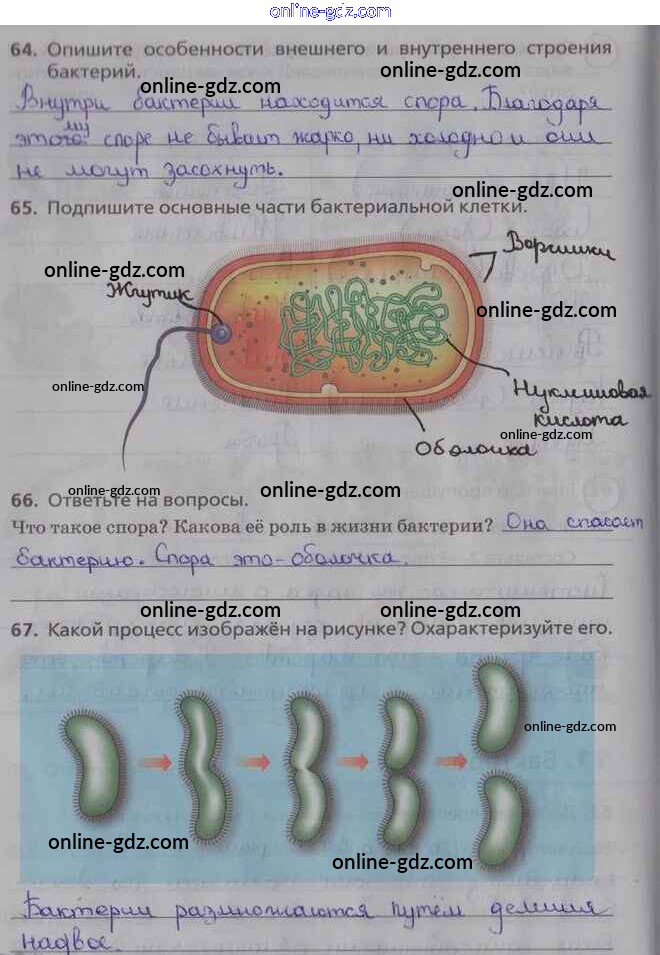 online-gdz.com
64. Опишите особенности внешнего и внутреннего строения
бактерий.
online-gdz.com
online-gdz.com
Внутри бактерии находится спора. Благодаря
этого му споре не бывает жарко, ни холодно и они
не могут засохнуть.
online-gdz.com
65. Подпишите основные части бактериальной клетки.
Ворсинки
online-gdz.com
Жгутик
online-gdz.com
online-gdz.com
Нуклеиновая
кислота
online-gdz.com
Оболочка
online-gdz.com
66. Ответьте на вопросы.
Что такое спора? Какова её роль в жизни бактерии? Она спасает
бактерию. Спора это-оболочка.
online-gdz.com
online-gdz.com
67. Какой процесс изображён на рисунке? Охарактеризуйте его.
online-gdz.com
online-gdz.com
online-gdz.com
Бактерии размножаются путём деления
надвое.